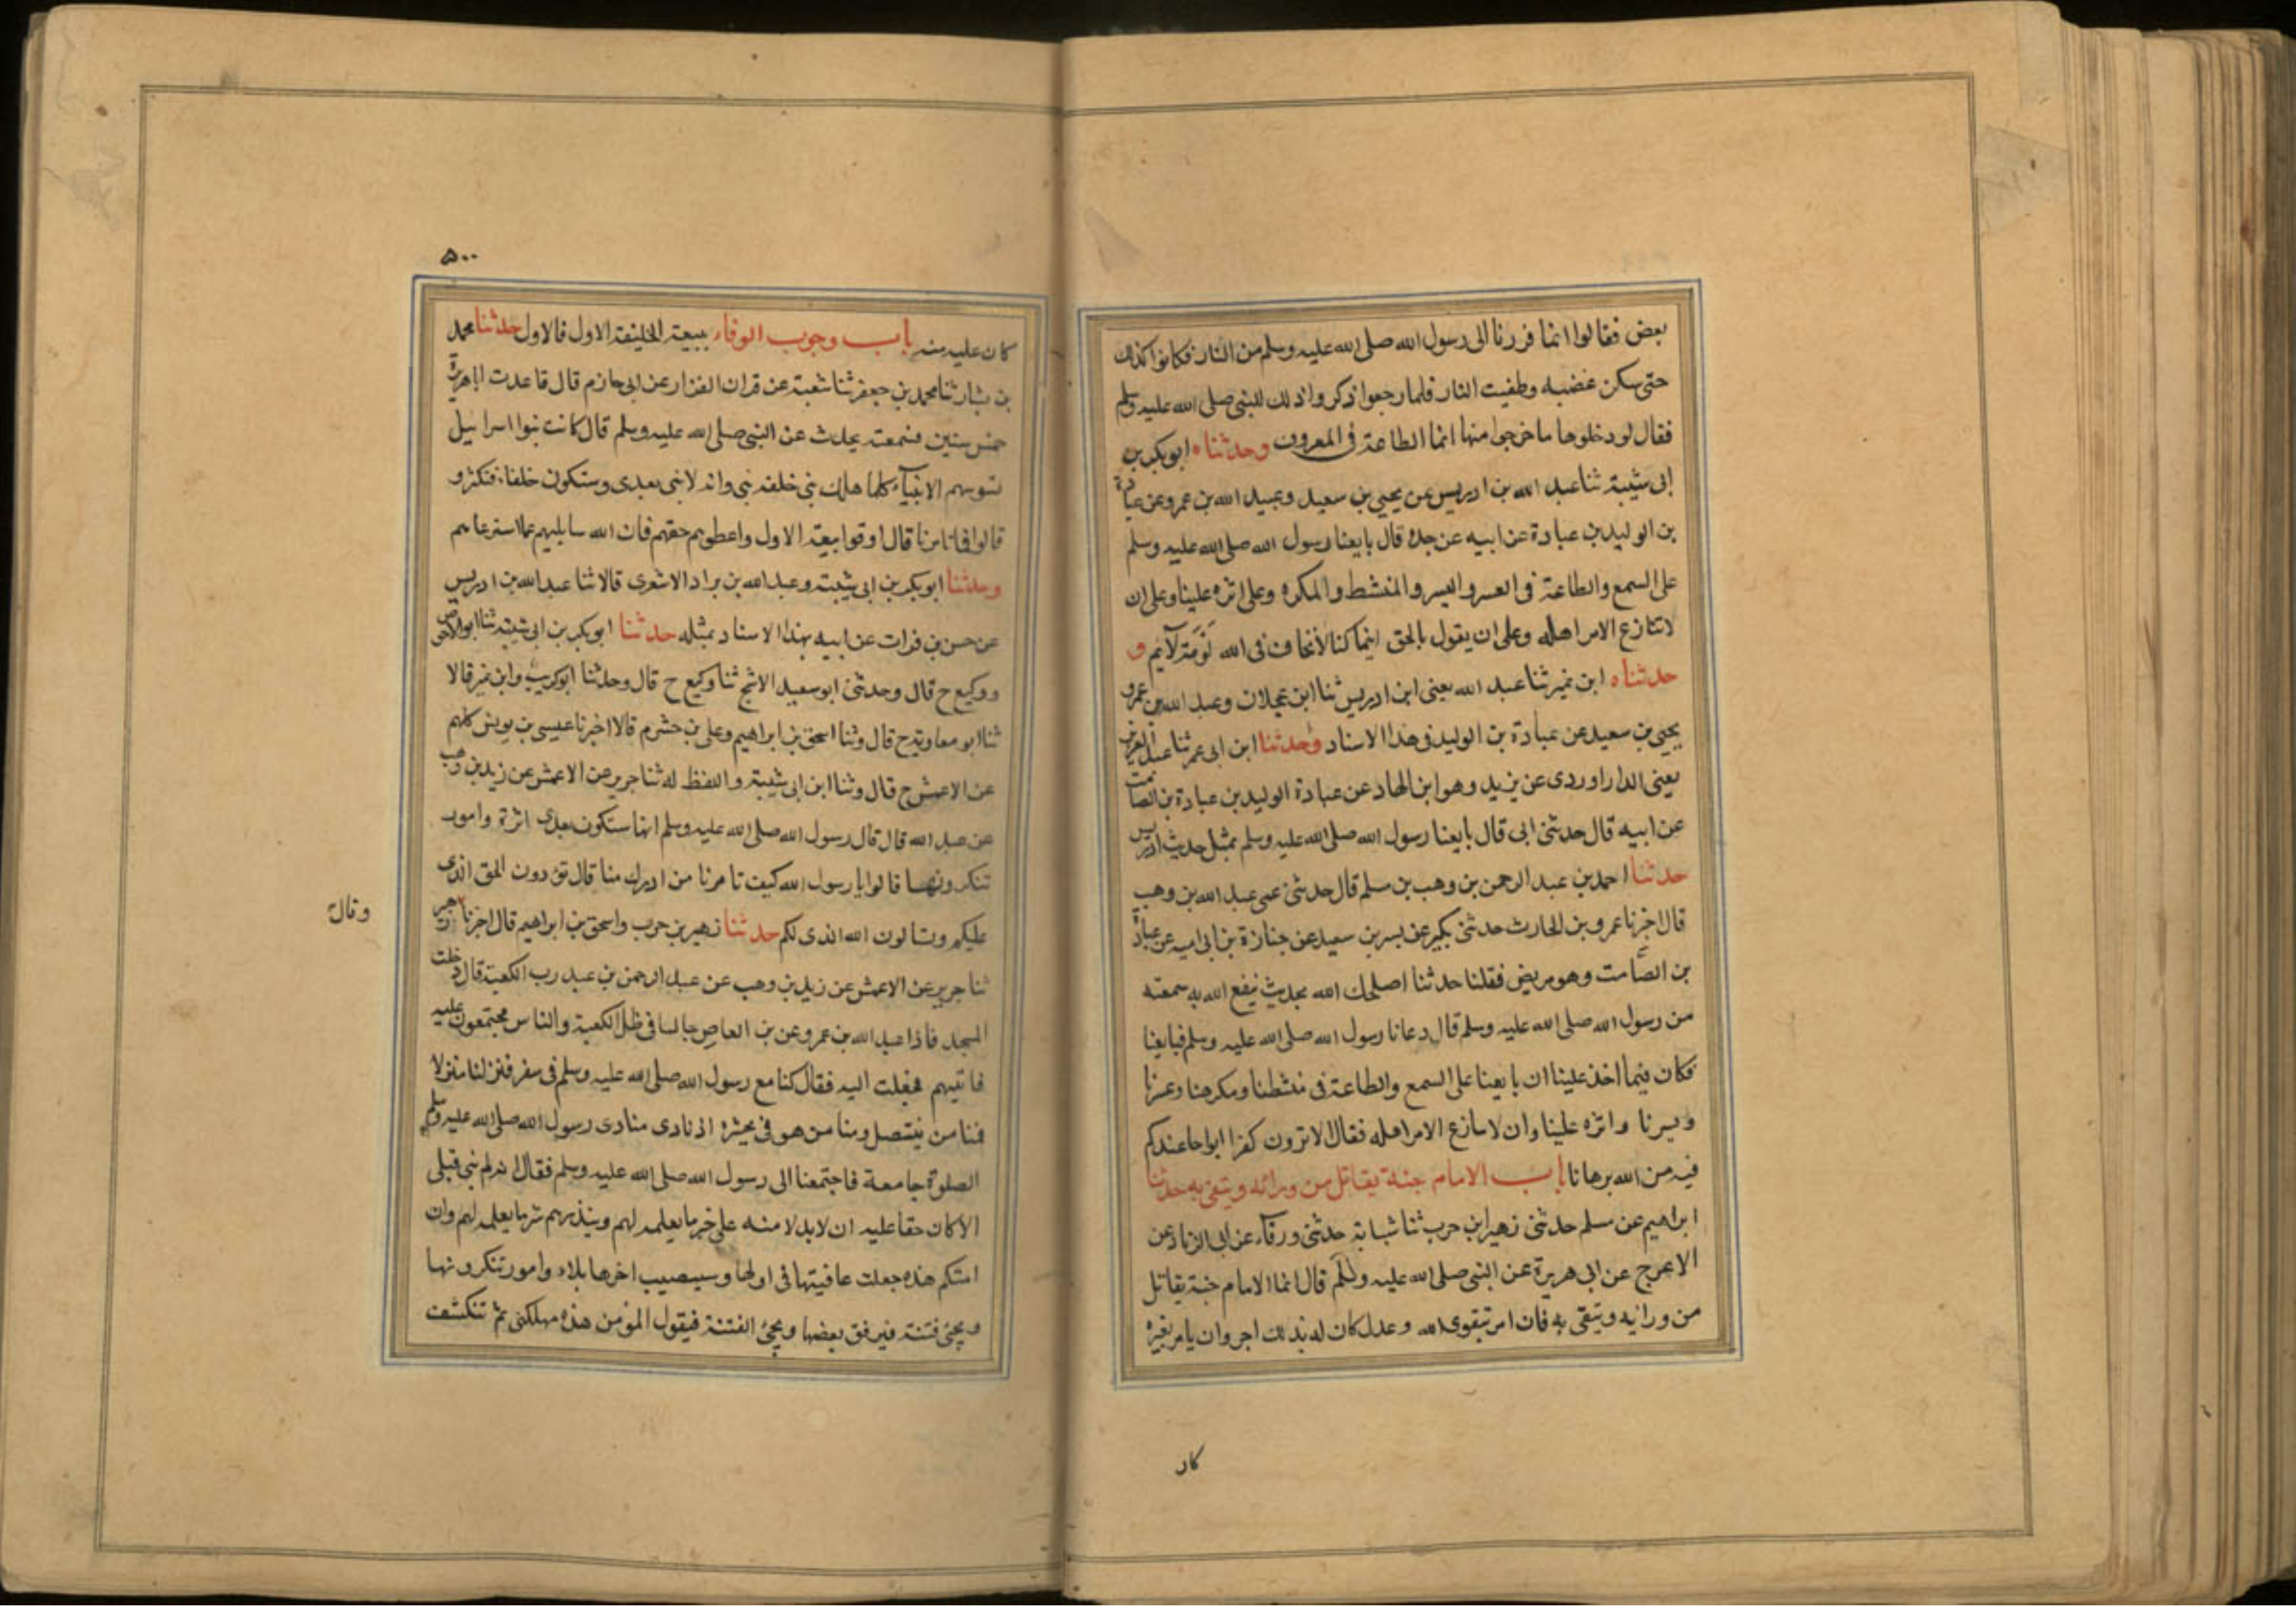 بعض فقالوا انما فررنا الى رسول الله صلى الله عليه وسلم من النار فكانوا كذلك
حتى سكن غضبه وطفيت النار فلما رجعوا ذكروا ذلك للنبى صلى الله عليه وسلم
فقال لو دخلوها ما خرجوا منها انما الطاعة فى المعروف وحدثناه ابو بكر بن
ابى شيبة ثنا عبد الله بن ادريس عن يحيى بن سعيد وعبيد الله بن عمر وعن عبادة
بن الوليد بن عبادة عن ابيه عن جده قال بايعنا رسول الله صلى الله عليه وسلم
على السمع والطاعة فى العسر واليسر والمنشط والمكره وعلى اثره علينا وعلى ان
لا تنازع الامر اهله وعلى ان يقول بالحق اينما كنا لا نخاف فى الله لَوْمَة لآيم و
حدثناه ابن نمير ثنا عبد الله يعنى ابن ادريس ثنا ابن عجلان وعبد الله بن عمرو
يحيى بن سعيد عن عبادة بن الوليد فى هذا الاسناد وحدثنا ابن ابى عمر ثنا عبد العزيز
يعنى الداراوردى عن يزيد وهو ابن الهاد عن عبادة الوليد بن عبادة بن الصامت
عن ابيه قال حدثنى ابى قال بايعنا رسول الله صلى الله عليه وسلم بمثل حديث ادريس
حدثنا احمد بن عبد الرحمن بن وهب بن سلم قال حدثنى عمى عبد الله بن وهب
قال اخبرنا عمرو بن الحارث حدثنى بكير عن بسر بن سعيد عن جنازة بن ابى اميه عن عبادة
بن الصامت وهو مريض فقلنا حدثنا اصلحك الله بحديث ينفع الله به سمعته
من رسول الله صلى الله عليه وسلم قال دعانا رسول الله صلى الله عليه وسلم فبايعنا
فكان فيما اخذ علينا ان بايعنا على السمع والطاعة فى منشطنا ومكرهنا وعسرنا
ويسرنا واثره علينا وان لا سازع الامر اهله فقال الا ترون كفرا ابواحا عندكم
فيه من الله برهانا باب الامام جنة يقاتل من ورائه ويتقى به حدثنا
ابراهيم عن سلم حدثنى زهير ابن حرب ثنا شبابة حدثنى ورقآء عن ابى الزناد عن
الاعرج عن ابى هريرة عن النبى صلى الله عليه وسلم قال انما الامام جنة يقاتل
من ورايه ويتقى به فان امر بتقوى الله وعدل كان له بذلك اجر وان يامر بغيره
كان
٥٠٠
كان عليه منه باب وجوب الوفاء ببيعة الخليفة الاول فالاول حدثنا محمد
بن بشار ثنا محمد بن جعفر ثنا شعبة عن قرات الفزار عن ابى حازم قال قاعدت ابا هريرة
خمس سنين فسمعته يحدث عن النبى صلى الله عليه وسلم قال كانت بنوا اسرائيل
تسوسهم الانبيآء كلما هلك نبى خلفه نبى وانه لا نبى بعدى وستكون خلفاء فتكثرو
قالوا فما تامرنا قال اوفوا بيعة الاول واعطوهم حقهم فان الله سايلهم عما استرعاهم
وحدثنا ابو بكر بن ابى شيبة وعبد الله بن براد الاشعرى قالا ثنا عبد الله بن ادريس
عن حسن بن فرات عن ابيه بهذا الاسناد بمثله حدثنا ابو بكر بن ابى شيبة ثنا ابو الاحوص
ووكيع ح قال وحدثنى ابو سعيد الاشج ثنا وكيع ح قال وحدثنا ابو كريب وابن نمير قالا
ثنا ابو معاوية ح قال وثنا اسحق بن ابراهيم وعلى بن خشرم قالا اخبرنا عيسى بن يونس كلهم
عن الاعمش ح قال وثنا ابن ابى شيبة واللفظ له ثنا جرير عن الاعمش عن زيد بن وهب
عن عبد الله قال قال رسول الله صلى الله عليه وسلم انها ستكون بعدى اثرة وامور
تنكرونها قالوا يا رسول الله كيف تامرنا من ادرك منا قال تؤدون الحق الذى
عليكم وتسالون الله الذى لكم حدثنا زهير بن حرب واسحق بن ابراهيم قال اخبرنا زهير
وقال
ثنا جرير عن الاعمش عن زيد بن وهب عن عبد الرحمن بن عبد رب الكعبة قال دخلت
المسجد فاذا عبد الله بن عمرو عن بن العاص جالسا فى ظل الكعبة والناس مجتمعون عليه
فاتيهم فجلت اليه فقال كنا مع رسول الله صلى الله عليه وسلم فى سفر فنزلنا منزلا
فمنا من ينتصل ومنا من هو فى جشره اذ نادى منادى رسول الله صلى الله عليه وسلم
الصلوة جامعة فاجتمعنا الى رسول الله صلى الله عليه وسلم فقال انه لم نبى قبلى
الا كان حقا عليه ان لا يدلا منه على خير ما يعلمه لهم وينذرهم شر ما يعلمه لهم وان
امتكم هذه جعلت عافيتها فى اولها وسيصيب اخرها بلاء وامور تنكرونها
ويجئ فتنة فيرفق بعضها ويجئ الفتنة فيقول المؤمن هذه مهلكتى ثم تنكشف